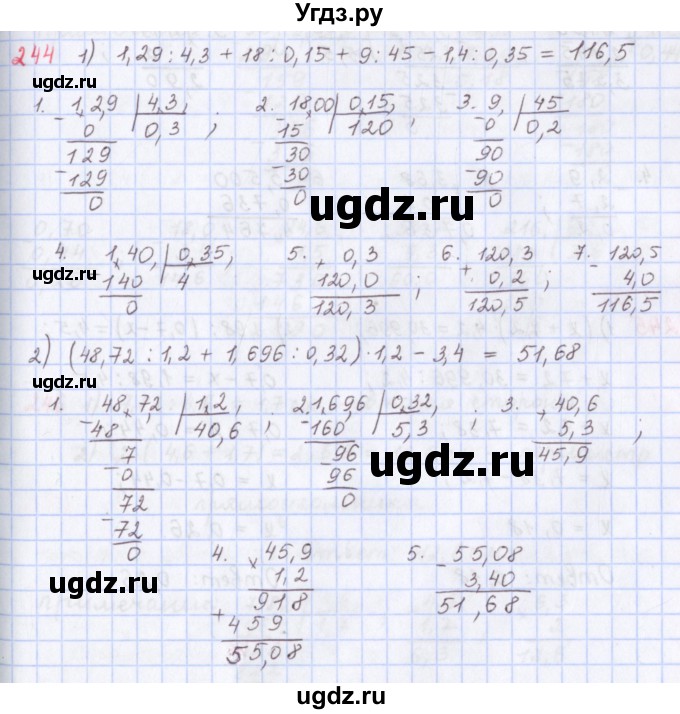 Угдз.ру
244 1) 1,29 : 4,3 + 18 : 0,15 + 9 : 45 − 1,4 : 0,35 = 116,5
ugdz.ru
1. 1,29 | 4,3 ; 2. 18,00 | 0,15 ; 3. 9, | 45
− 0 | 0,3 − 15 | 120 − 0 | 0,2
129 30 90
− 129 − 30 − 90
0 0 0
ugdz.ru
ugdz.ru
4. 1,40 | 0,35, 5. + 0,3 6. 120,3 7. − 120,5
− 140 | 4 120,0 ; + 0,2 ; 4,0
0 120,3 120,5 116,5
2) (48,72 : 1,2 + 1,696 : 0,32) · 1,2 − 3,4 = 51,68
ugdz.ru
1. 48,72 | 1,2 ; 2. 1,696 | 0,32 ; 3. + 40,6
− 48 | 40,6 − 160 | 5,3 5,3 ;
7 − 96 45,9
− 0 96
72 0
− 72
0
ugdz.ru
ugdz.ru
4. × 45,9 5. − 55,08
1,2 3,40
918 51,68
+ 459
55,08
ugdz.ru
ugdz.ru